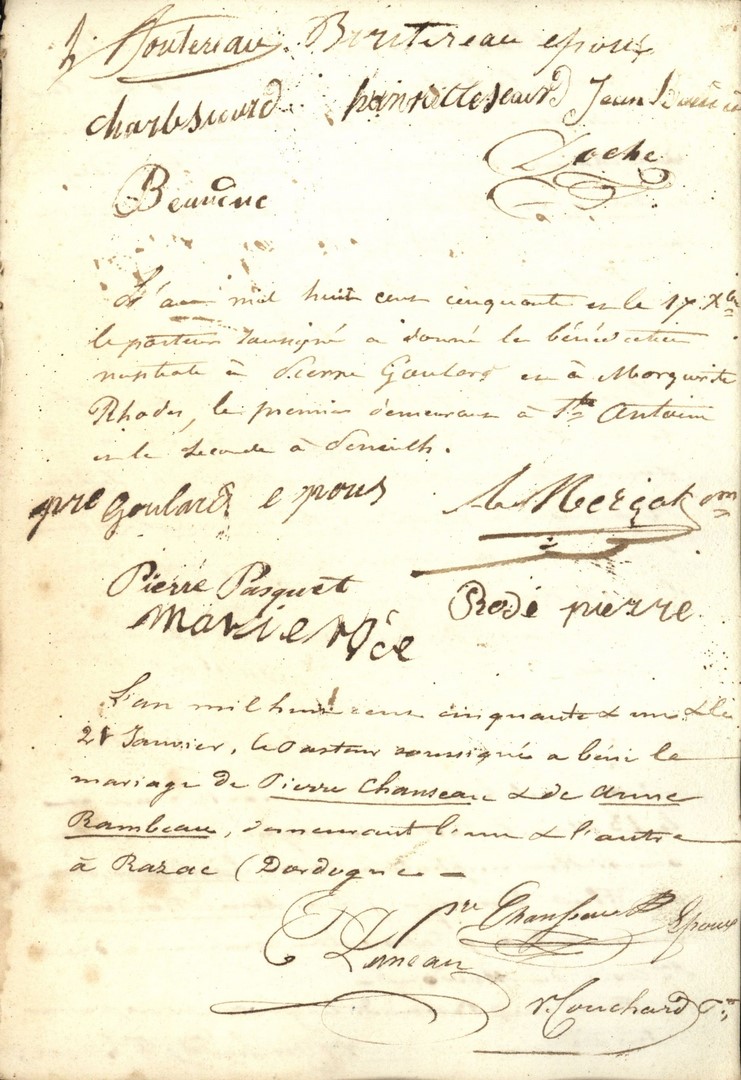 Boutereau Boutereau epoux
charles sicard henriette seard Jean
Loche
L'an mil huit cent cinquante et le 17 Xbre
le pasteur soussigné a donné la bénédiction
nuptiale à Pierre Goulard et à Marguerite
Rhodes, le premier demeurant à St Antoine
et la seconde à
pre Goulard epous A. Mercat pm
Pierre Pasquet
Rodé pierre
Marie
L'an mil huit cent cinquante & un & le
21 Janvier, le Pasteur soussigné a béni le
mariage de Pierre Chanseau & de Anne
Rambeau, demeurant l'un & l'autre
à Razac (Dordogne —
pre Chanseau Epoux
v. Couchard